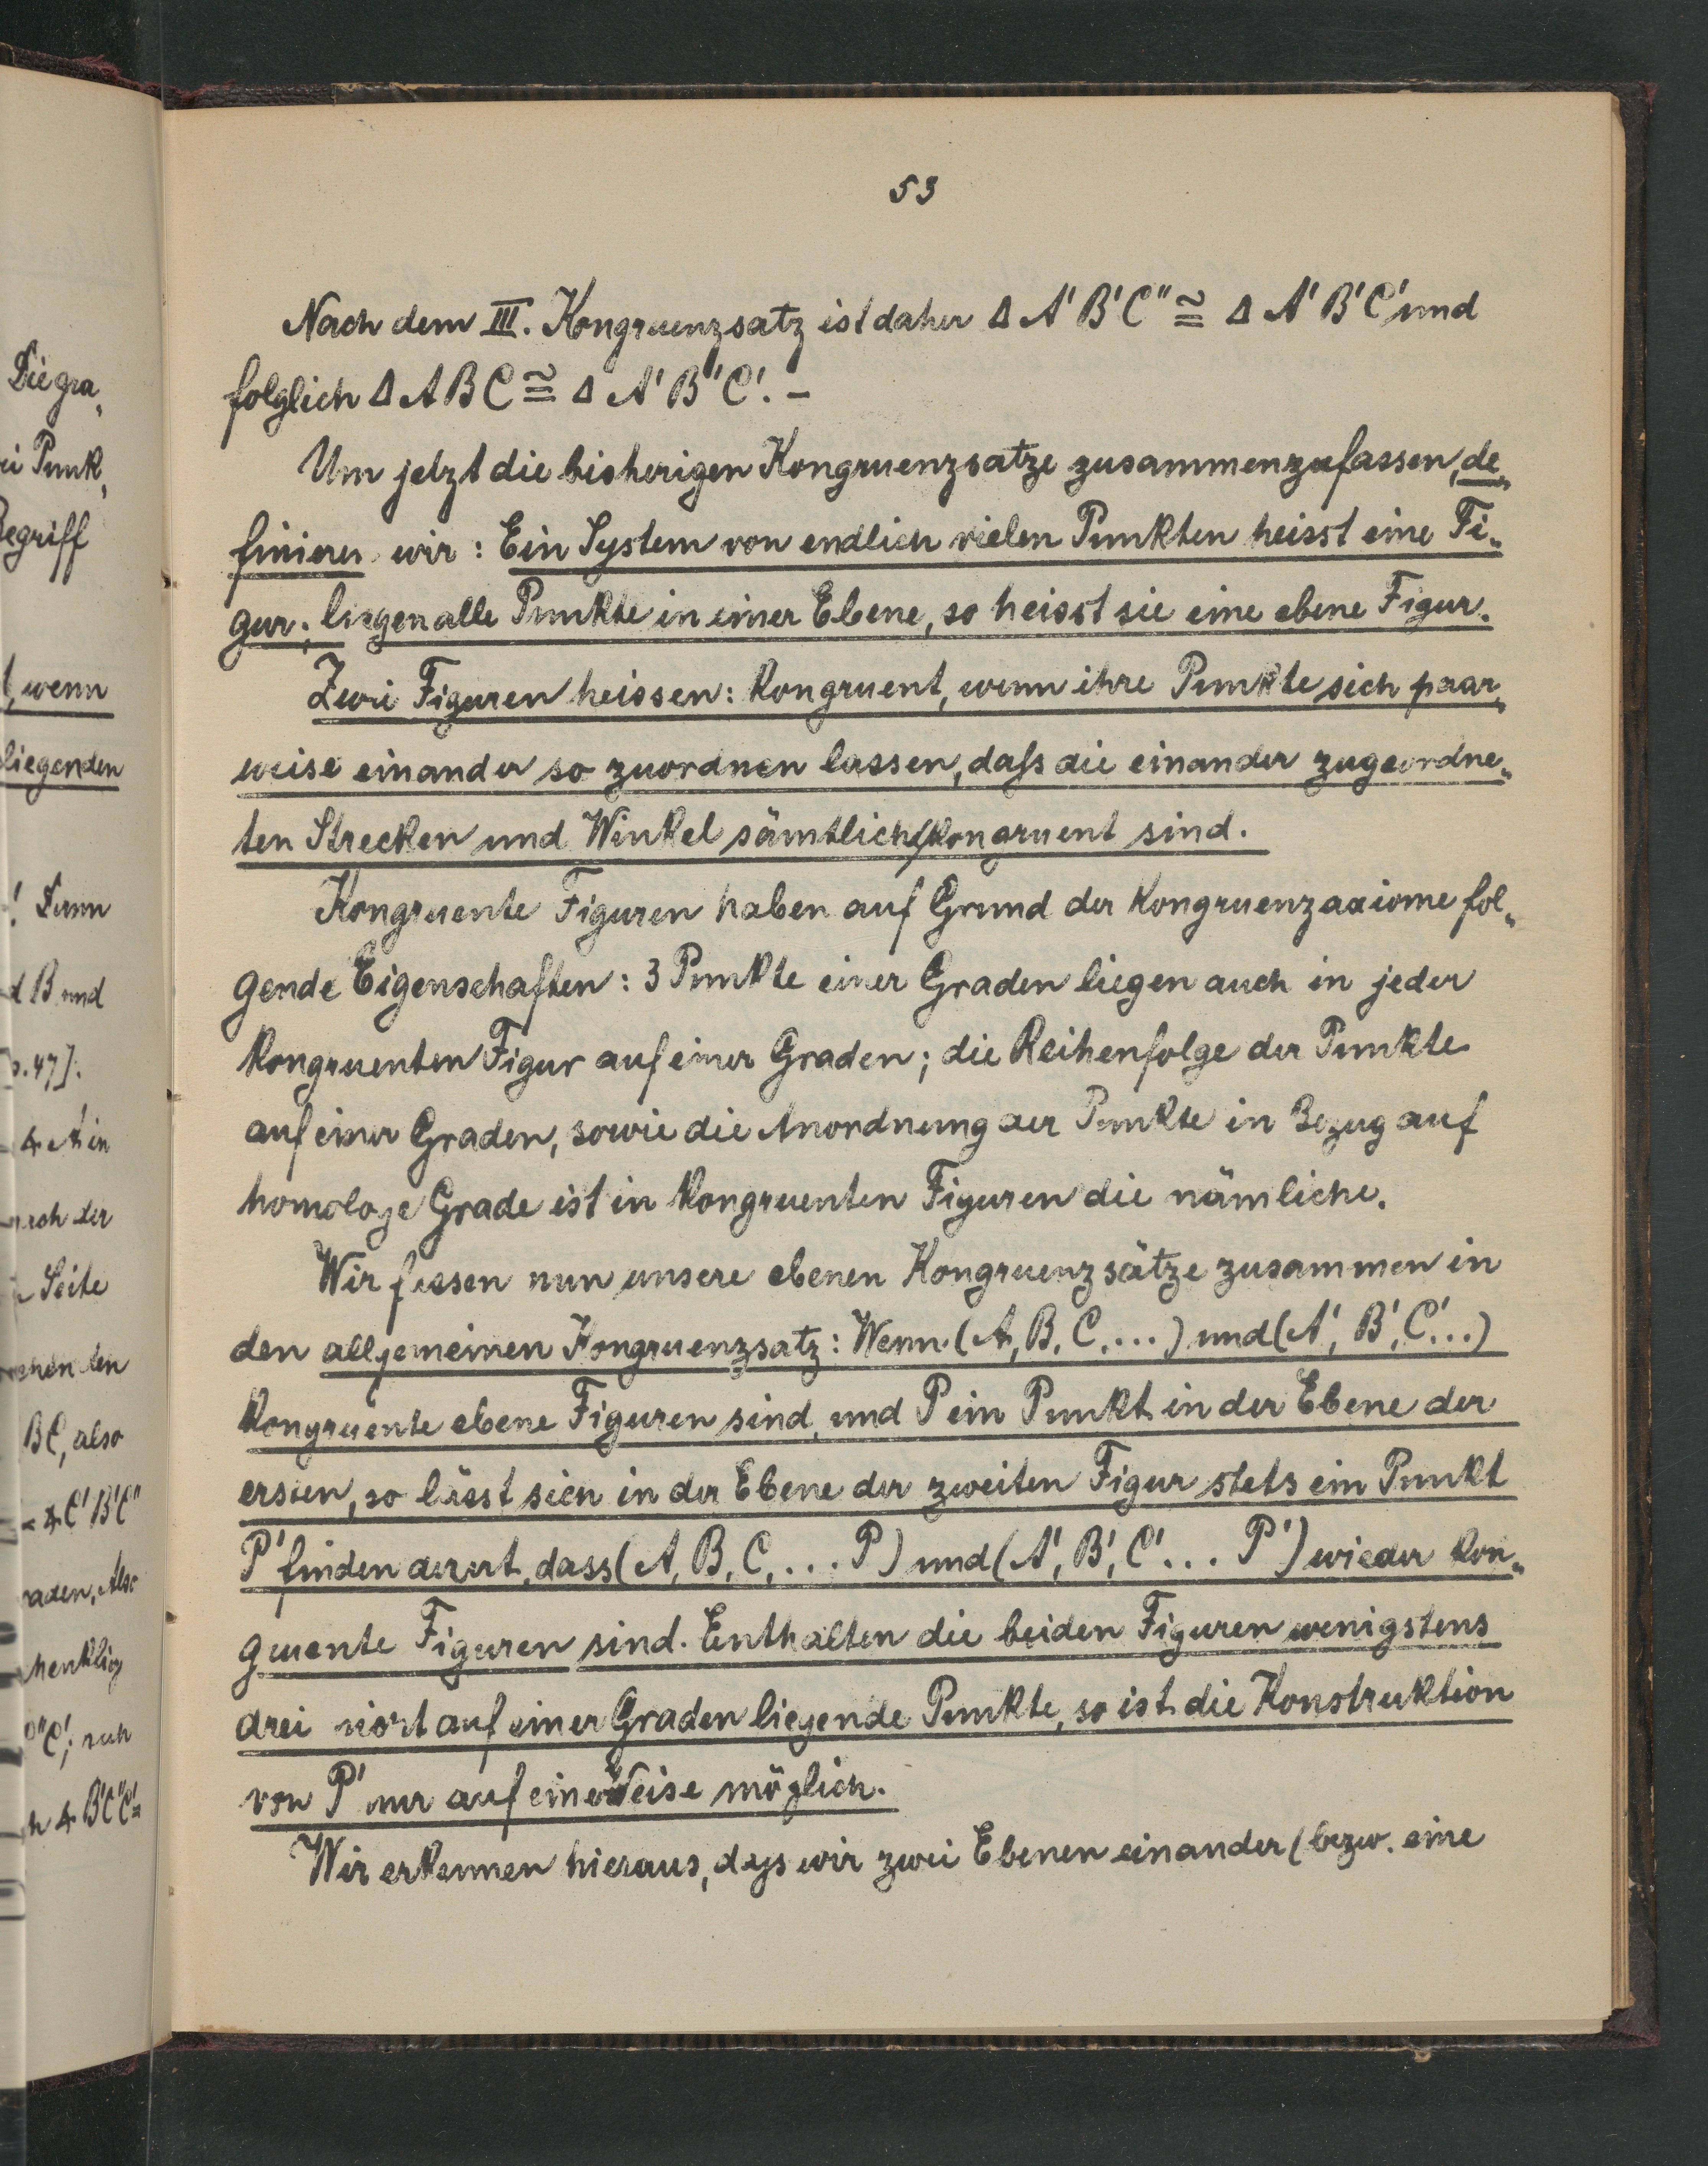 53
Nach dem III. Kongruenzsatz ist daher Δ A' B' C'' ≅ Δ A' B' C' und
folglich Δ A B C ≅ Δ A' B' C'. –
Um jetzt die bisherigen Kongruenzsatze zusammenzufassen, de„
finieren wir: Ein System von endlich vielen Punkten heisst eine Fi„
gur; liegen alle Punkte in einer Ebene, so heisst sie eine ebene Figur.
Zwei Figuren heissen: kongruent, wenn ihre Punkte sich paar„
weise einander so zuordnen lassen, daſs die einander zugeordne„
ten Strecken und Winkel sämtlich kongruent sind.
Kongruente Figuren haben auf Grund der Kongruenzaxiome fol„
gende Eigenschaften: 3 Punkte einer Graden liegen auch in jeder
kongruenten Figur auf einer Graden; die Reihenfolge der Punkte
auf einer Graden, sowie die Anordnung der Punkte in Bezug auf
homologe Grade ist in kongruenten Figuren die nämliche.
Wir fassen nun unsere ebenen Kongruenzsätze zusammen in
den allgemeinen Kongruenzsatz: Wenn (A, B, C, ...) und (A', B', C'...)
kongruente ebene Figuren sind, und P ein Punkt in der Ebene der
ersten, so lässt sich in der Ebene der zweiten Figur stets ein Punkt
P' finden derart, dass (A, B, C, ... P) und (A', B', C' ... P') wieder kon„
gruente Figuren sind. Enthalten die beiden Figuren wenigstens
drei nicht auf einer Graden liegende Punkte, so ist die Konstruktion
von P' nur auf eine Weise möglich.
Wir erkennen hieraus, daſs wir zwei Ebenen einander (bezw. eine
Die gra„
ei Punk„
Begriff
t, wenn
liegenden
! Denn
d B und
p. 47].
Seite
BC, also
∢ C' B' C''